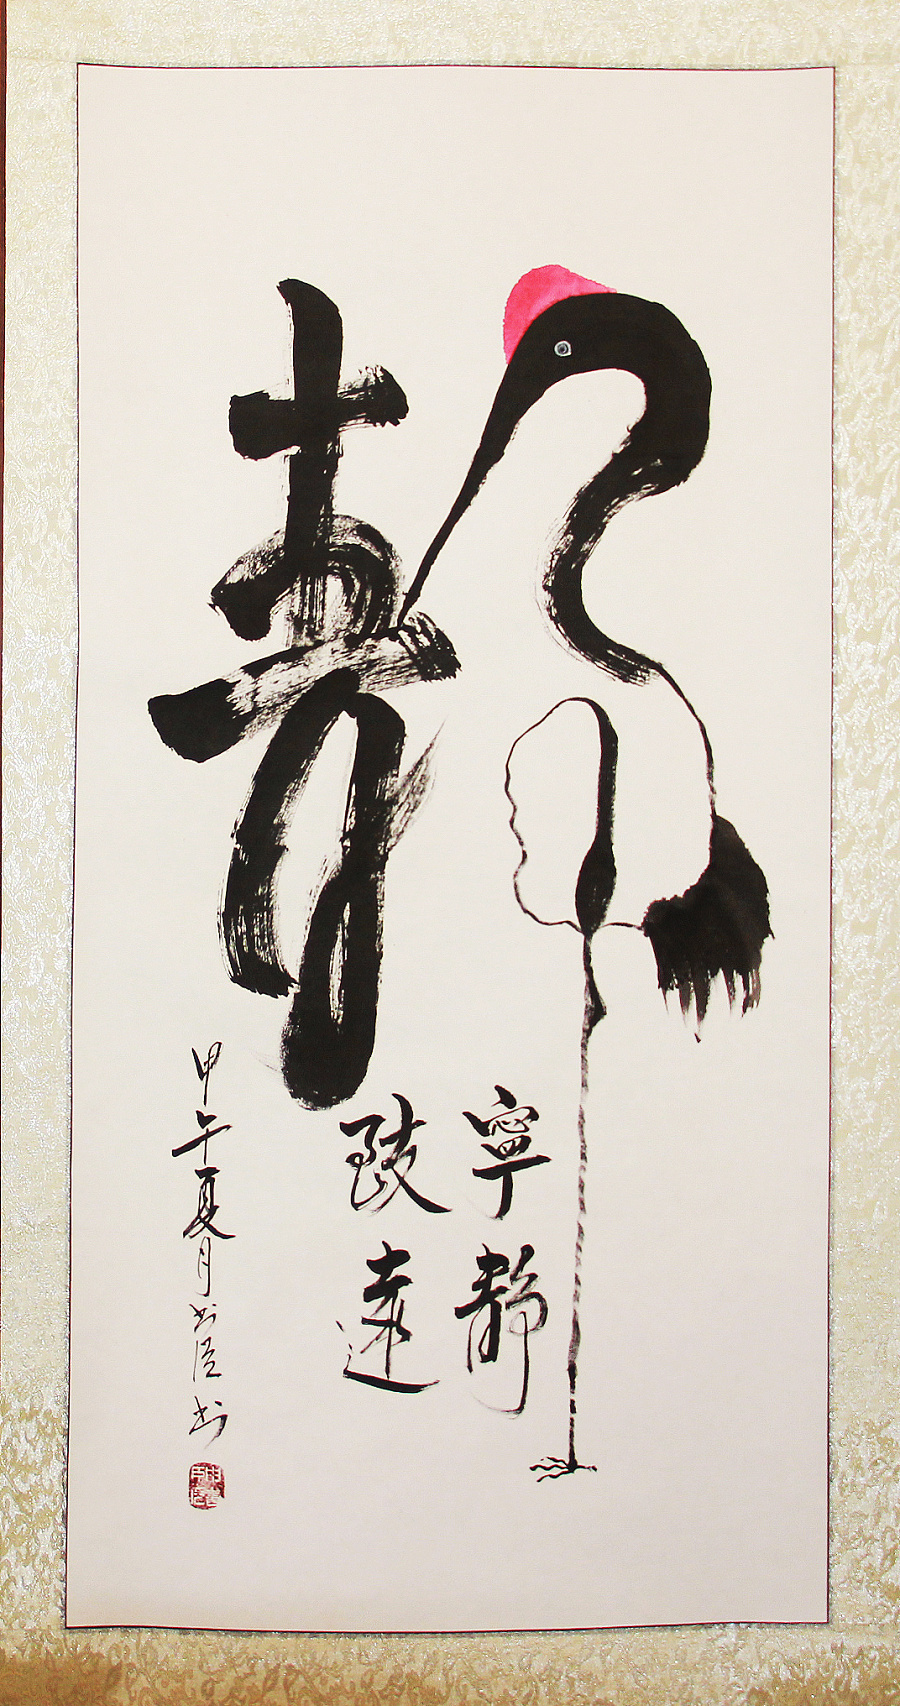 靜
寧靜
致遠
甲午夏月
書